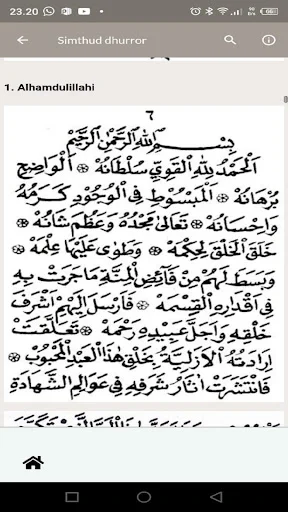 23.20
Simthud dhurror
1. Alhamdulillahi
٦
بِسْمِ اللهِ الرَّحْمٰنِ الرَّحِيْمِ
اَلْحَمْدُ لِلّٰهِ الْقَوِيِّ سُلْطَانُهْ ۞ اَلْوَاضِحِ
بُرْهَانُهْ ۞ اَلْمَبْسُوْطِ فِي الْوُجُوْدِ كَرَمُهُ
وَاِحْسَانُهْ ۞ تَعَالَى مَجْدُهُ وَعَظُمَ شَانُهْ ۞
خَلَقَ الْخَلْقَ لِحِكْمَهْ ۞ وَطَوَى عَلَيْهَا عِلْمَهْ ۞
وَبَسَطَ لَهُمْ مِنْ فَائِضِ الْمِنَّةِ مَا جَرَتْ بِهِ
فِيْ اَقْدَارِهِ الْقِسْمَهْ ۞ فَاَرْسَلَ اِلَيْهِمْ اَشْرَفَ
خَلْقِهِ وَاَجَلَّ عَبِيْدِهِ رَحْمَهْ ۞ تَعَلَّقَتْ
اِرَادَتُهُ الْاَزَلِيَّةُ بِخَلْقِ هٰذَا الْعَبْدِ الْمَحْبُوْبِ ۞
فَانْتَشَرَتْ اٰثَارُ شَرَفِهِ فِيْ عَوَالِمِ الشَّهَادَةِ